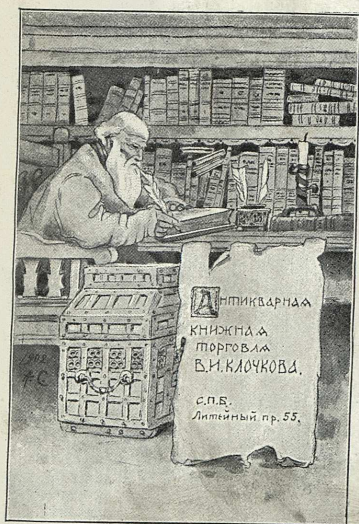 Антикварная
книжная
торговля
В. И. КЛОЧКОВА.
С.П.Б.
Литейный пр. 55.